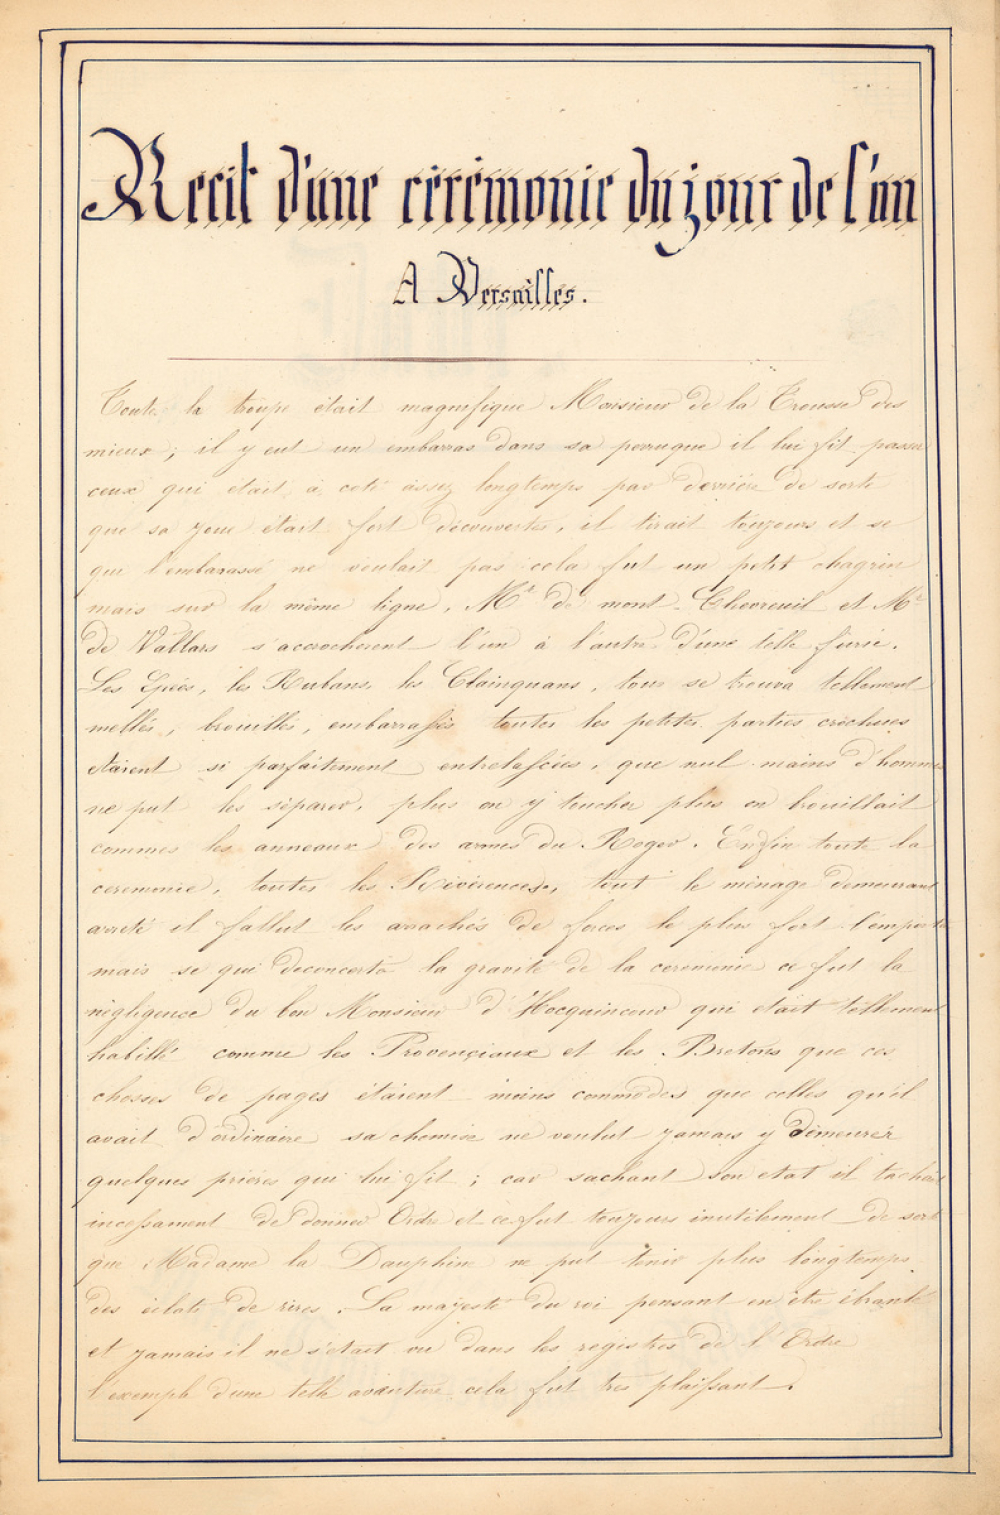 Recit d'une cérémonie du jour de l'an
A Versailles.
Toute la troupe était magnifique Monsieur de la Trousse des
mieux ; il y eut un embarras dans sa perruque il lui fit passer
ceux qui était à coté assez longtemps par derrière de sorte
que sa joue était fort découvertes, il tirait toujours et se
qui l'embarassé ne voulait pas cela fut un petit chagrin
mais sur la même ligne, Mr de mont-Chevreuil et Mr
de Vallars s'accrocherent l'un à l'autre d'une telle furie.
Les Epées, les Rubans, les Clainquans, tous se trouva tellement
mellés, brouillés, embarrassés toutes les petites parties crochues
étaient si parfaitement entrelascées, que nul mains d'hommes
ne put les séparer, plus on y toucher plus on brouillait
commes les anneaux des armes du Roger. Enfin toute la
ceremonie, toutes les Révérences, tout le ménage demeurant
arreté il fallut les arrachés de forces le plus fort l'emporta
mais se qui deconcerta la gravité de la ceremonie ce fut la
négligence du bon Monsieur d'Hocquincour qui était tellement
habillé comme les Provençiaux et les Bretons que ces
chosses de pages étaient moins commodes que celles qu'il
avait d'ordinaire sa chemise ne voulut jamais y demeurér
quelques prières qui lui fit ; car sachant son etat il tachait
incessament de donner Ordre et ce fut toujours inutilement de sort
que Madame la Dauphine ne put tenir plus longtemps
des éclats de rires. La majesté du roi pensant en etre ébranlé
et jamais il ne s'etait vu dans les registres de l'Ordre
l'exemple d'une telle aventure cela fut tres plaissant.